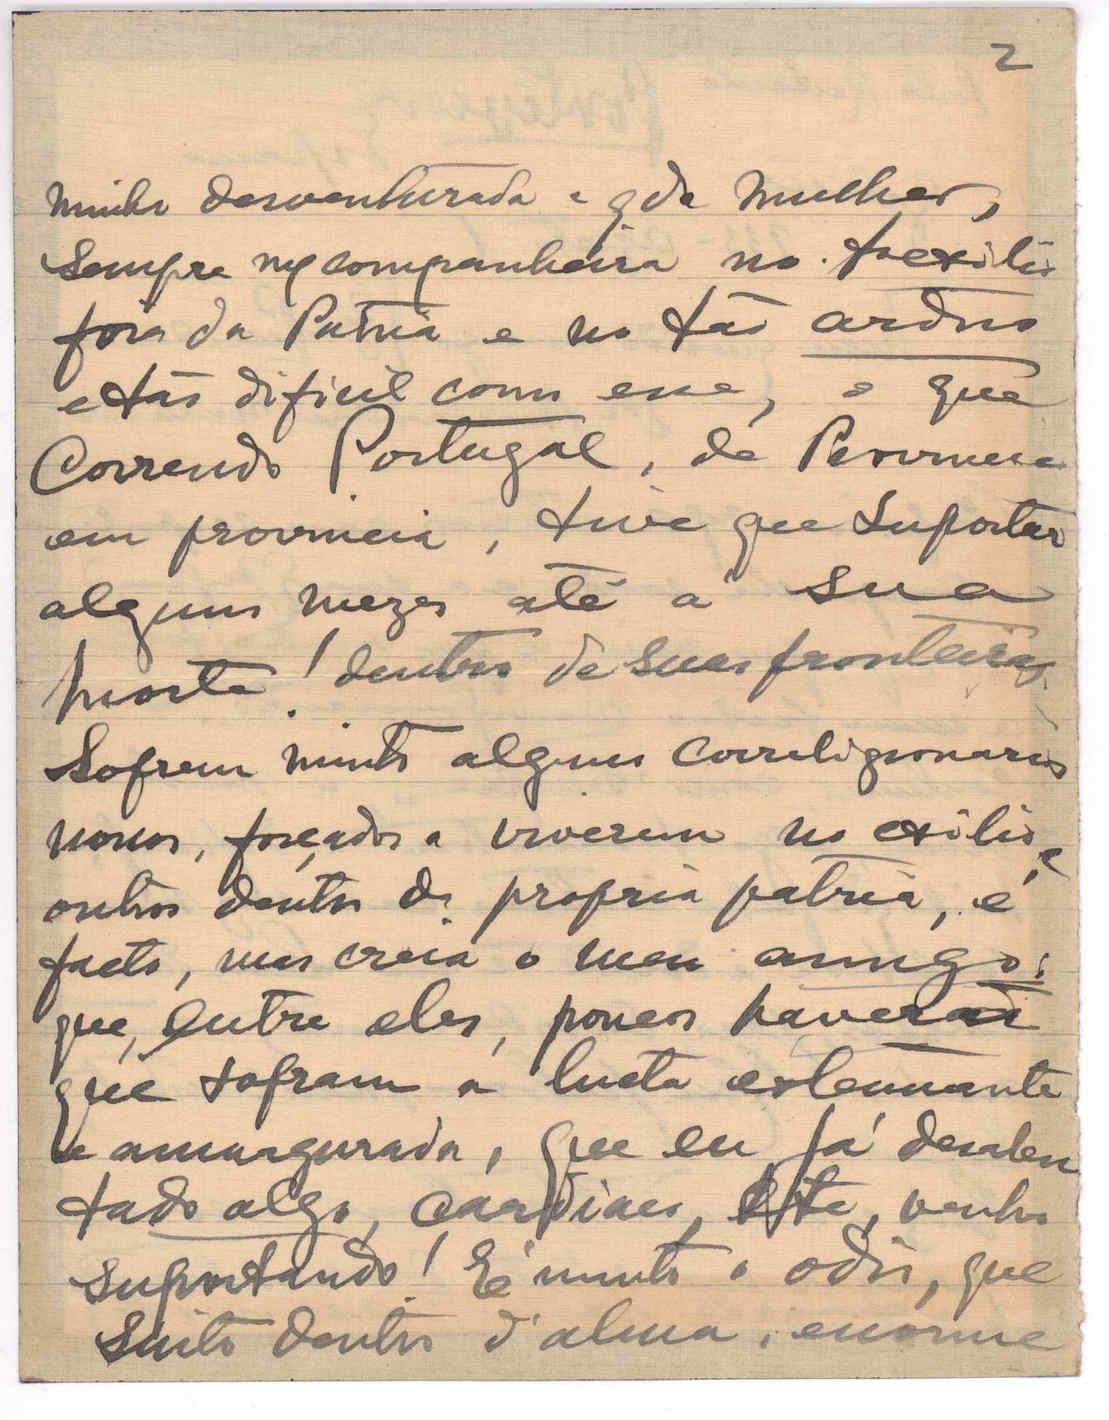 2
minha desventurada e qda Mulher,
Sempre companheira no exilio
fora da Patria e no tão arduo
e tão dificil como esse, o que
Correndo Portugal, de Provincia
em provincia, tive que Suportar
alguns mezes até a sua
morte! dentro de suas fronteiras.
Sofrem muito alguns correligionarios
nossos, forçados a viverem no exilio, e
outros dentro da propria patria, é
facto, mas creia o meu amigo:
que, entre eles, poucos haverão
que sofram a lucta extenuante
e amargurada, que eu já desalen
tado algo, cardiaco, venho
suportando! E' muito o odio, que
Sinto dentro d'alma, enorme